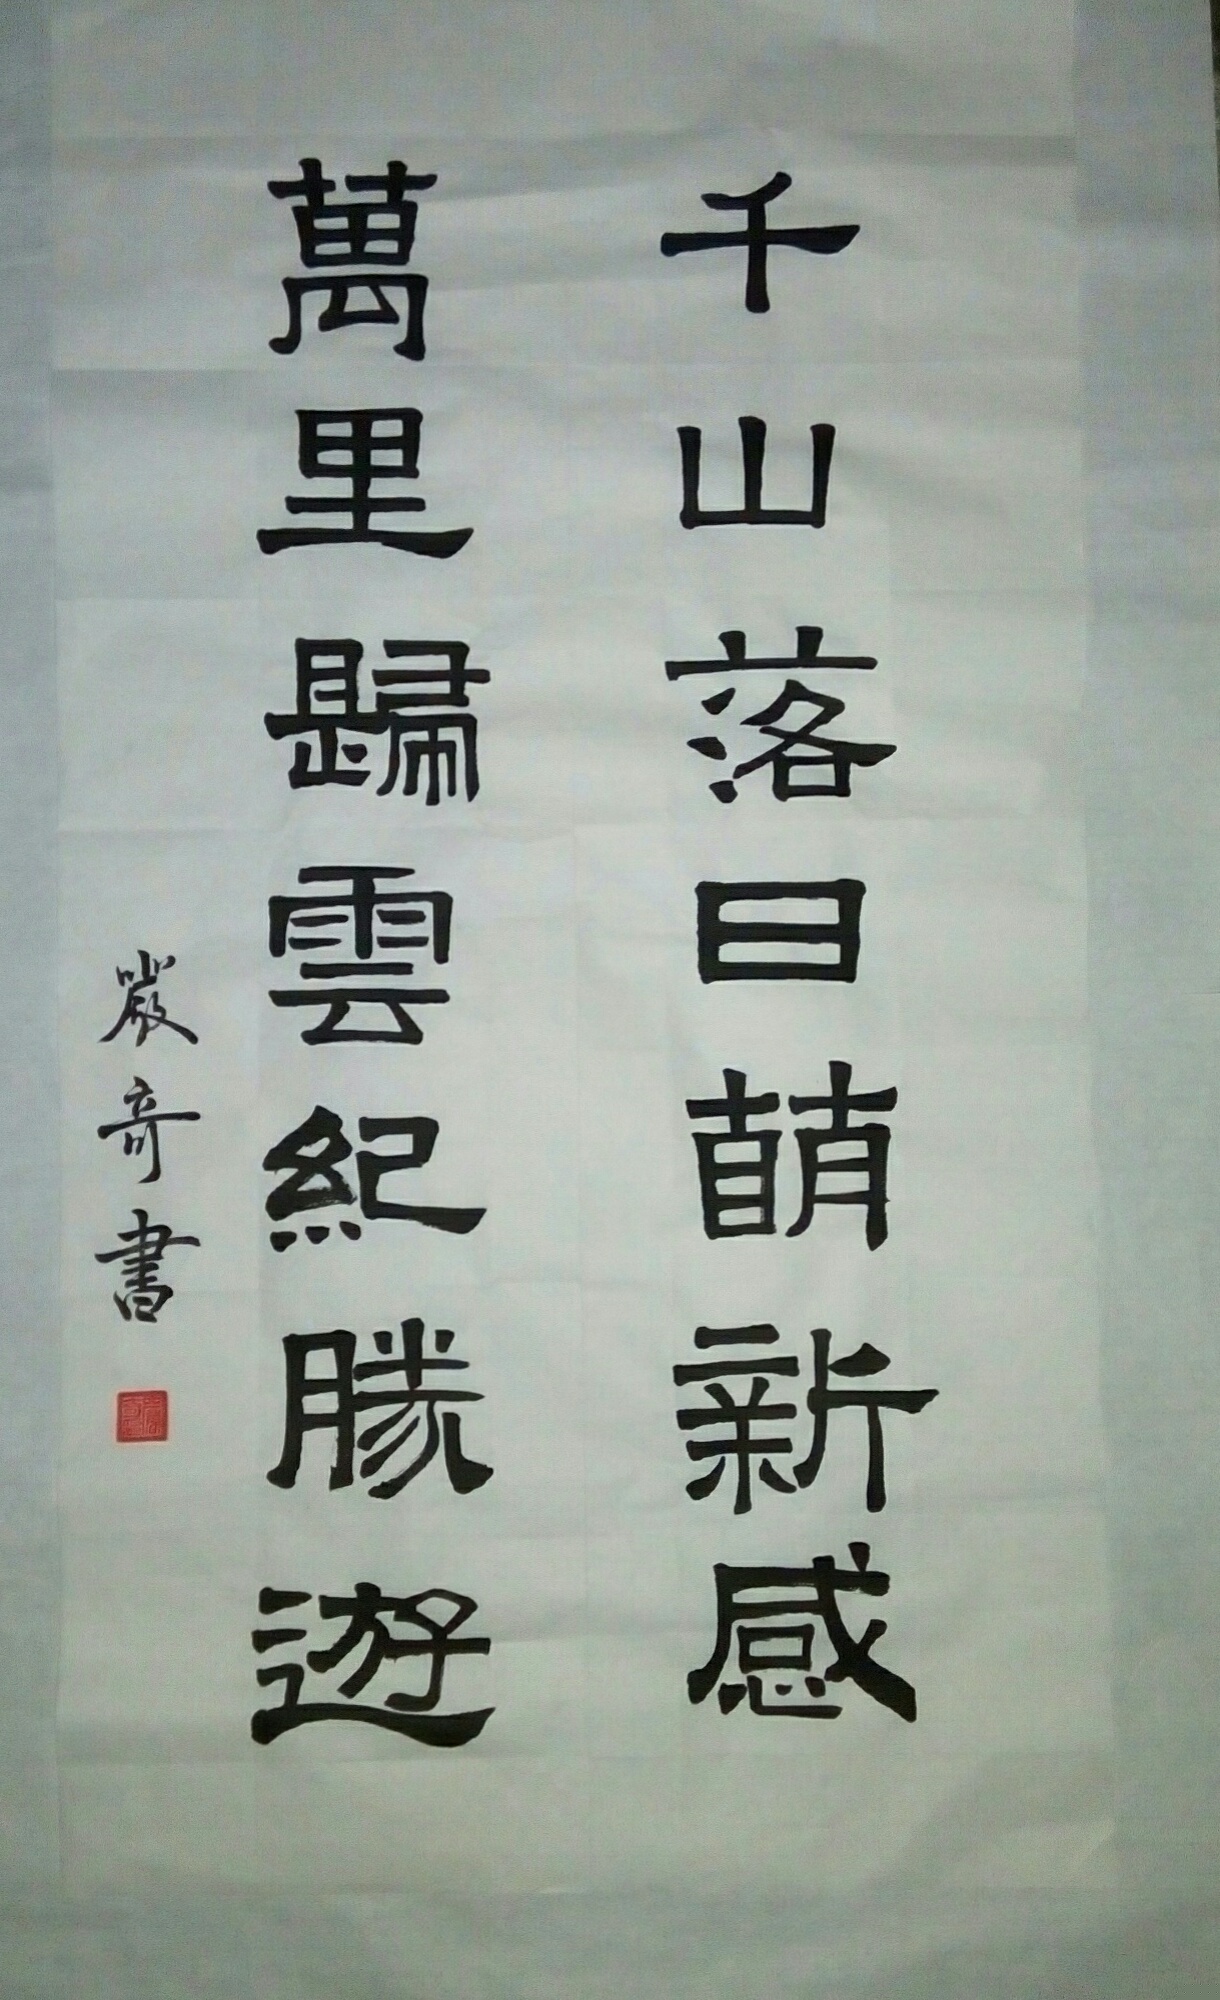 千山落日萌新感
萬里歸雲紀勝遊
嚴奇書